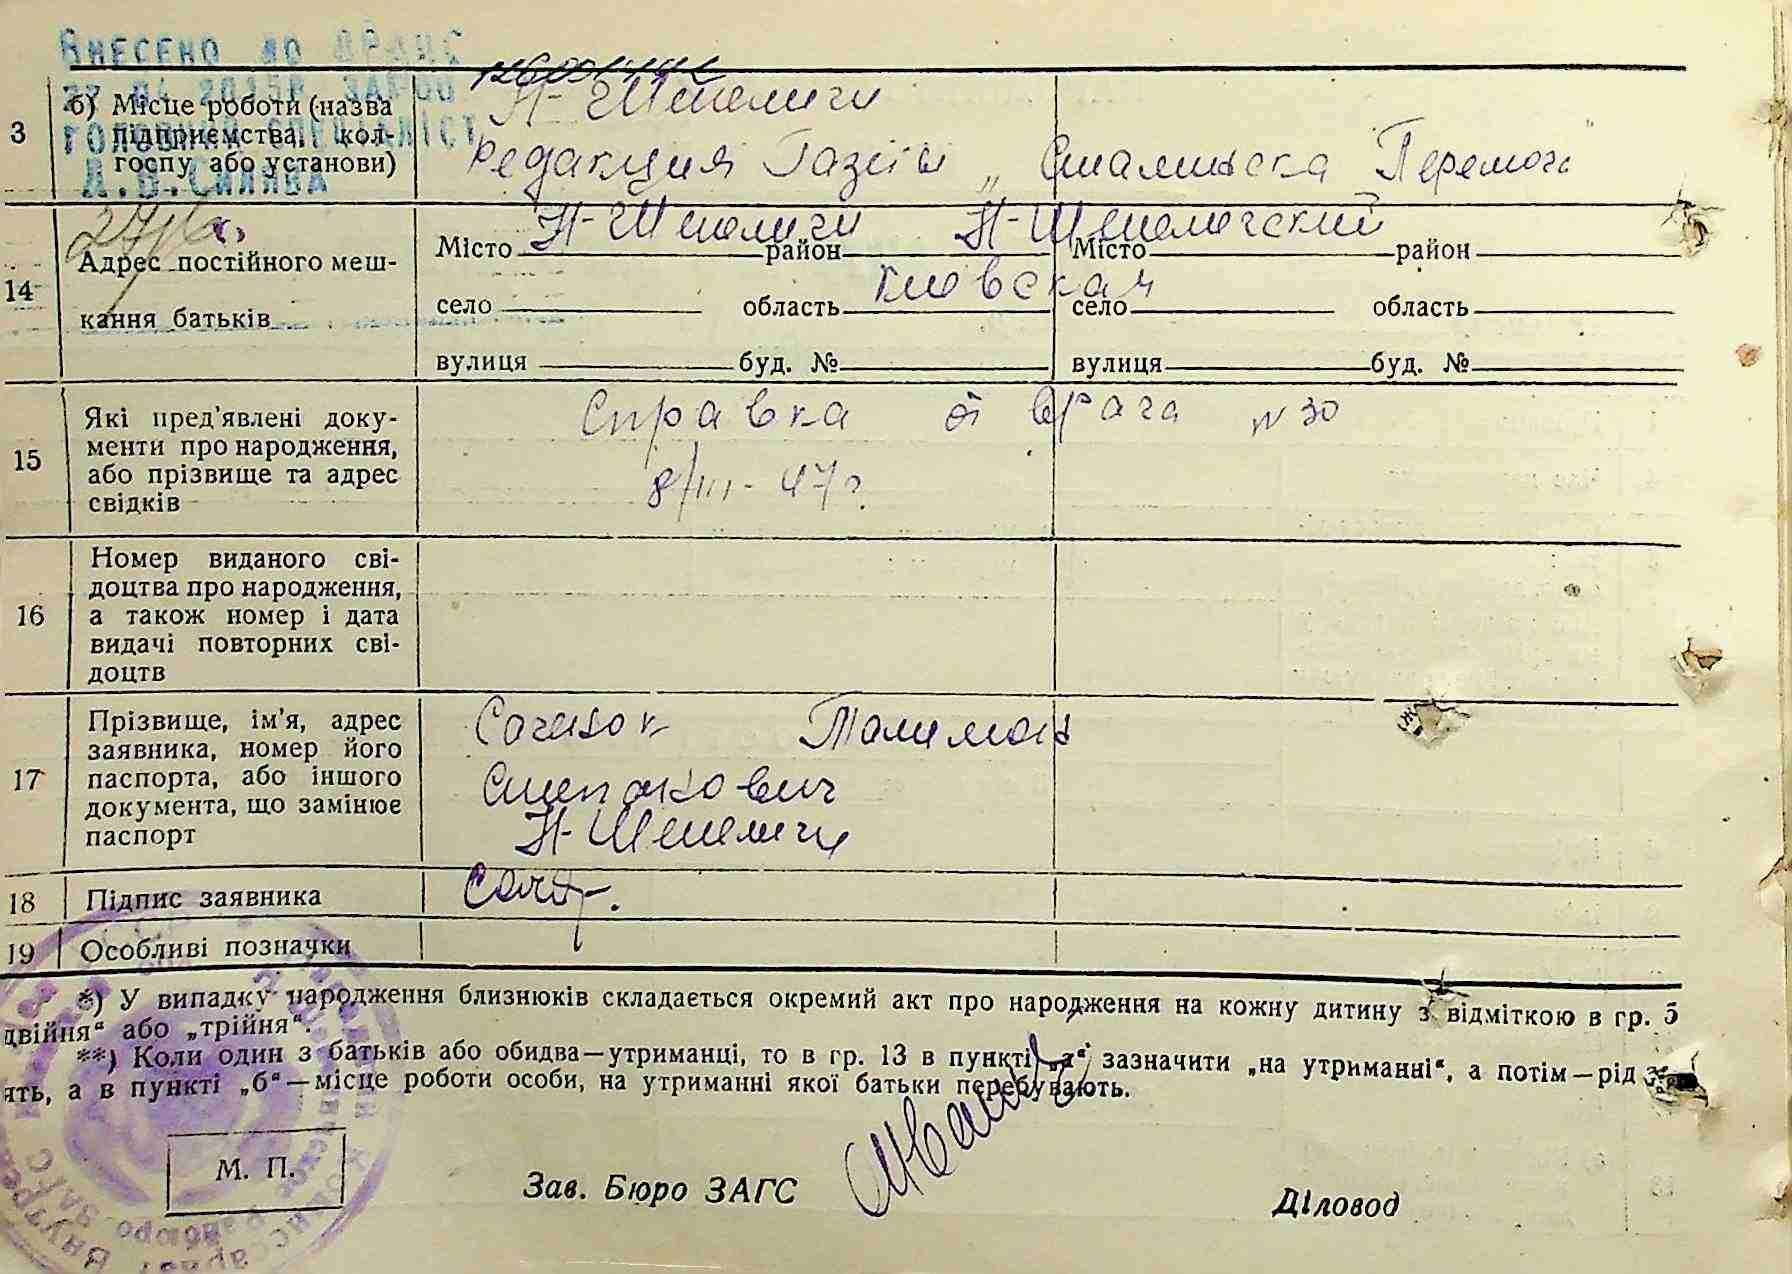 Внесено до ДРАЦС
3
б) Місце роботи (назва
підприємства, кол-
госпу або установи)
Н-Шепеличи
Редакция Газеты „Сталінська Перемога"
головний спеціаліст
14
Адрес постійного меш-
кання батьків
Місто Н-Шепеличи район Н-Шепеличский
Місто район
село область Киевская
село область
вулиця буд. №
вулиця буд. №
15
Які пред'явлені доку-
менти про народження,
або прізвище та адрес
свідків
Справка от врача N 30
8/III-47 г.
16
Номер виданого сві-
доцтва про народження,
а також номер і дата
видачі повторних сві-
доцтв
17
Прізвище, ім'я, адрес
заявника, номер його
паспорта, або іншого
документа, що замінює
паспорт
Степанович
Н-Шепеличи
18 Підпис заявника
19 Особливі позначки
*) У випадку народження близнюків складається окремий акт про народження на кожну дитину з відміткою в гр. 5
двійня" або „трійня".
**) Коли один з батьків або обидва—утриманці, то в гр. 13 в пункті „а" зазначити „на утриманні", а потім—рід
ять, а в пункті „б"—місце роботи особи, на утриманні якої батьки перебувають.
М. П.
Зав. Бюро ЗАГС
Діловод